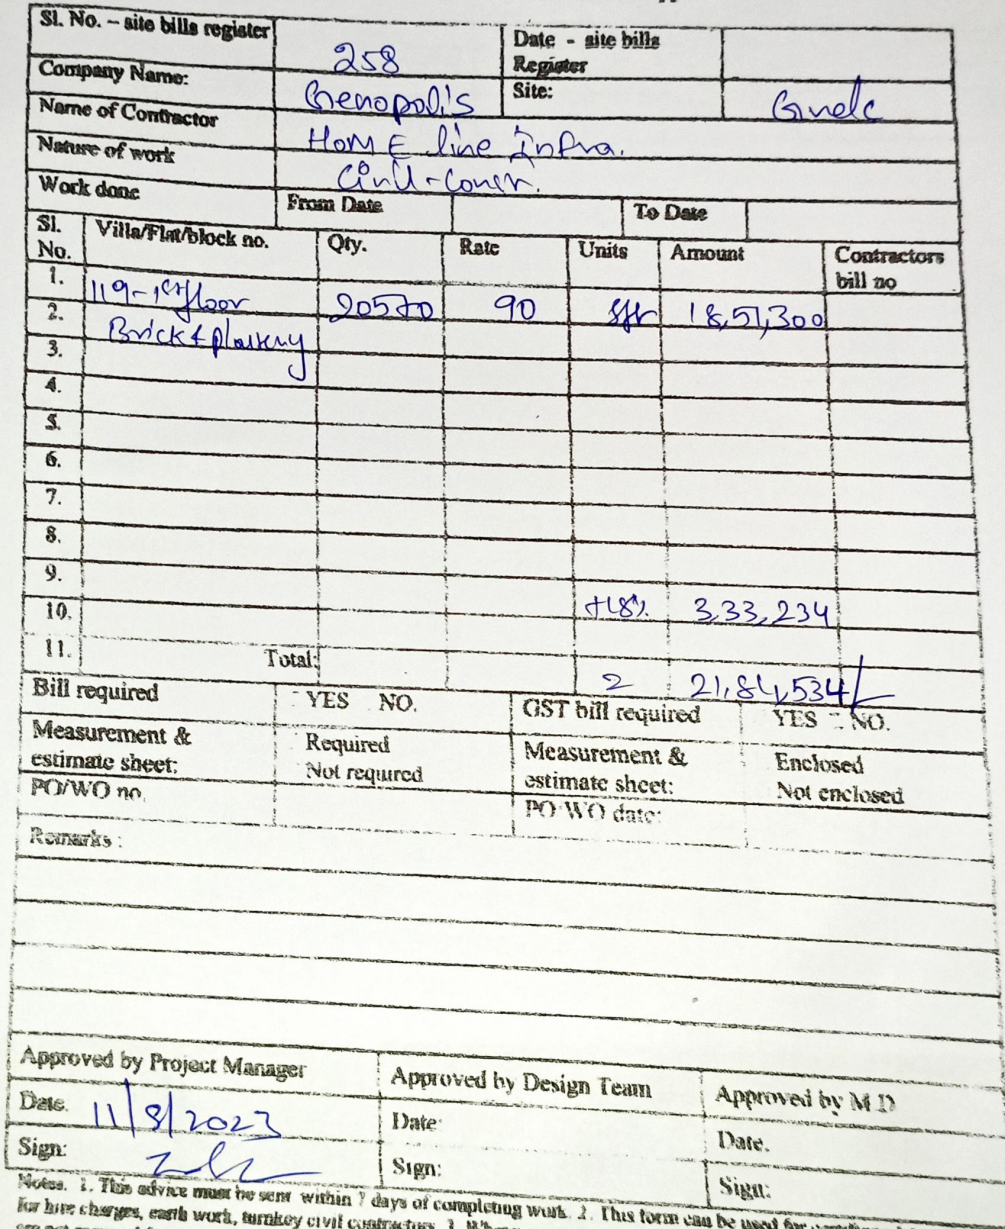 Sl. No. – site bills register 258 Date - site bills Register
Company Name: Genopolis Site:
Name of Contractor HOME line Infra.
Nature of work Civil - Constr.
Work done From Date To Date
Sl. No. Villa/Flat/block no. Qty. Rate Units Amount Contractors bill no
1. 119-1st floor 20570 90 sft 18,51,300
2. Brick & plastering
3.
4.
5.
6.
7.
8.
9.
10. +18% 3,33,234
11. Total: 21,84,534/-
Bill required YES NO. GST bill required YES - NO.
Measurement & estimate sheet: Required Not required Measurement & estimate sheet: Enclosed Not enclosed
PO/WO no. PO/WO date:
Remarks :
Approved by Project Manager Approved by Design Team Approved by M D
Date. 11/8/2023 Date: Date.
Sign: Sign: Sign:
Notes. 1. This advice must be sent within 7 days of completing work. 2. This form can be used for
for hire charges, earth work, turnkey civil contractors.